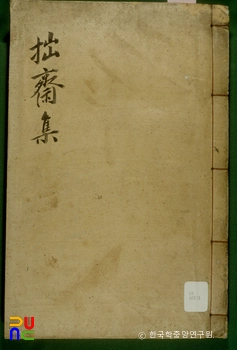 拙齋集
© 한국학중앙연구원